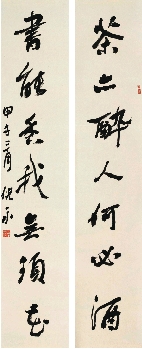 茶亦醉人何必酒
書能香我無須花
甲午三月